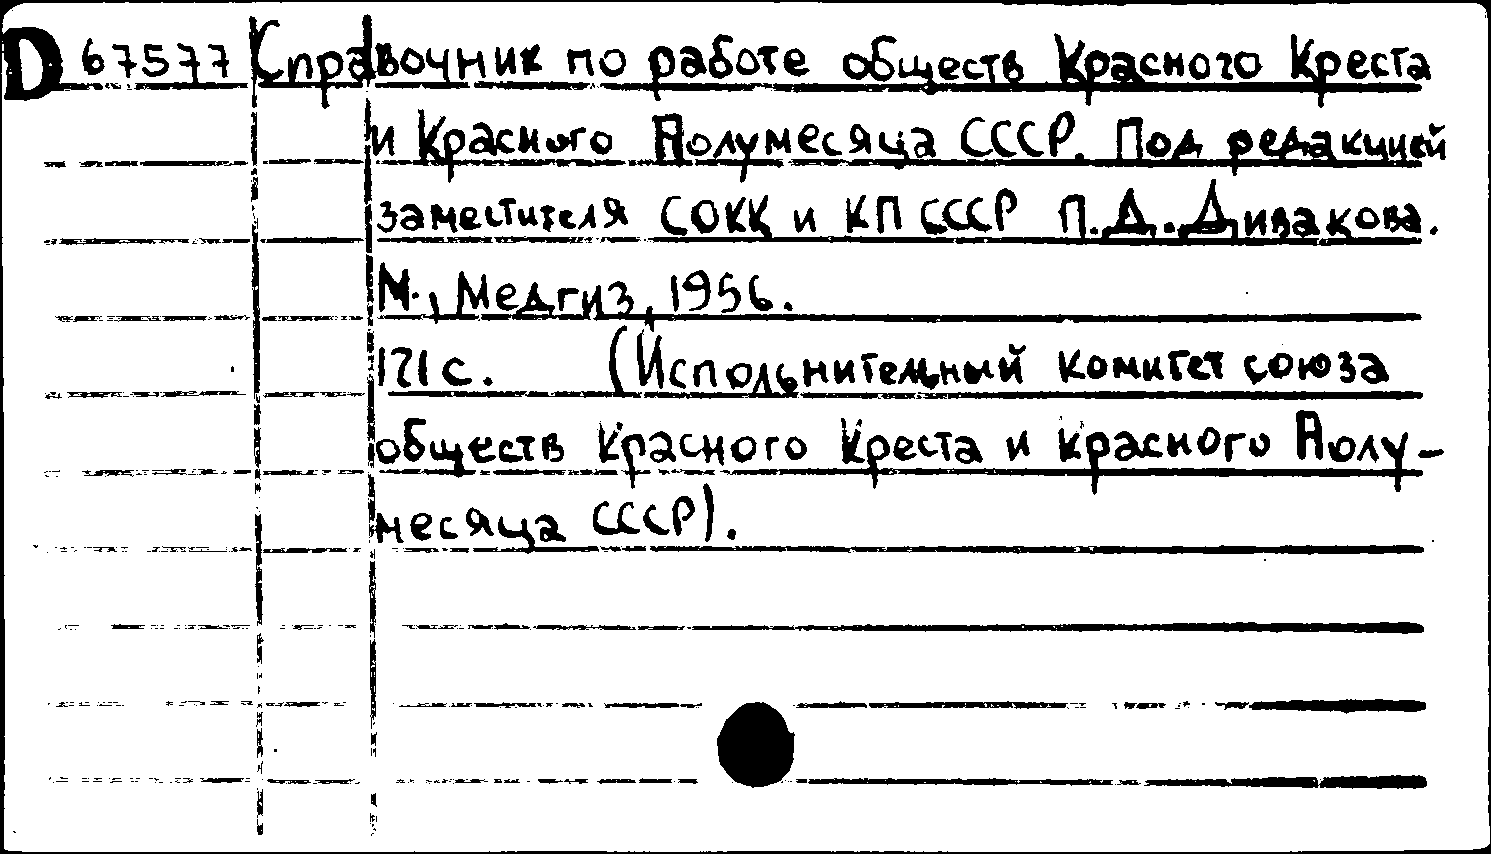 D 67577 Справочник по работе обществ Красного Креста
и Красного Полумесяца СССР. Под редакцией
заместителя СОКК и КП СССР П.Д. Дивакова.
М., Медгиз, 1956.
171 с. (Испольнительный комитет союза
обществ Красного Креста и красного Полу-
месяца СССР).